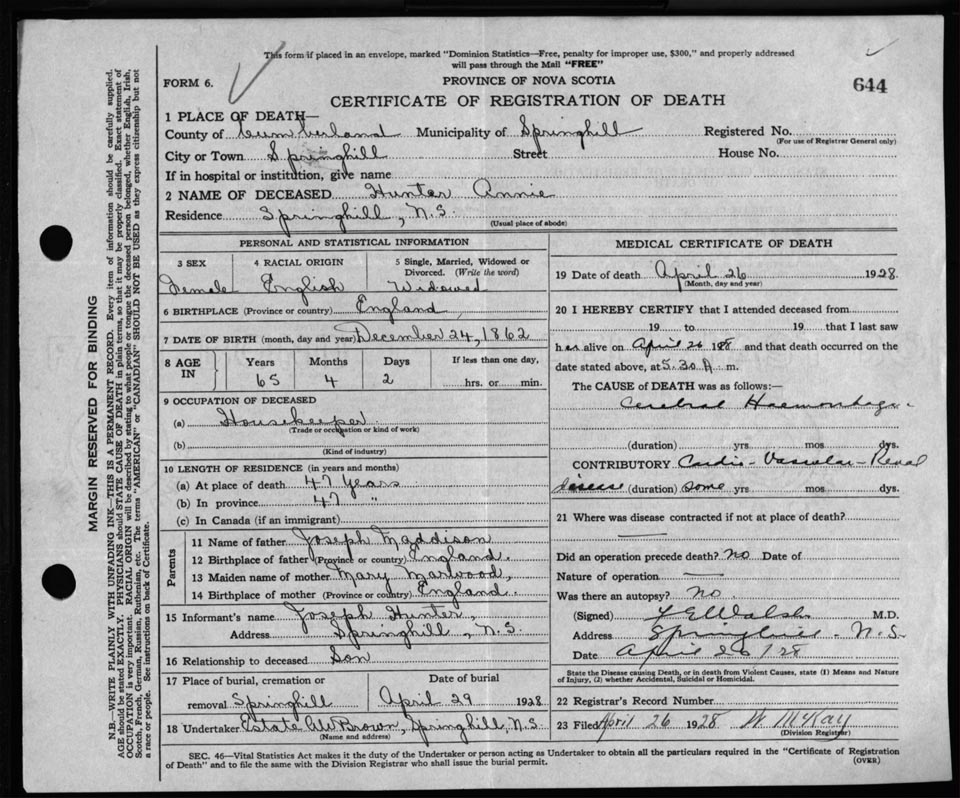 This form if placed in an envelope, marked "Dominion Statistics—Free, penalty for improper use, $300," and properly addressed
will pass through the Mail "FREE"
FORM 6.
PROVINCE OF NOVA SCOTIA
644
CERTIFICATE OF REGISTRATION OF DEATH
1 PLACE OF DEATH—
County of Cumberland Municipality of Springhill Registered No.
(For use of Registrar General only)
City or Town Springhill Street House No.
If in hospital or institution, give name
2 NAME OF DECEASED Hunter Annie
Residence Springhill, N.S.
(Usual place of abode)
PERSONAL AND STATISTICAL INFORMATION
3 SEX 4 RACIAL ORIGIN 5 Single, Married, Widowed or
Divorced. (Write the word)
Female English Widowed
6 BIRTHPLACE (Province or country) England
7 DATE OF BIRTH (month, day and year) December 24, 1862
8 AGE IN Years Months Days If less than one day,
65 4 2 hrs. or min.
9 OCCUPATION OF DECEASED
(a) Housekeeper
(Trade or occupation or kind of work)
(b)
(Kind of industry)
10 LENGTH OF RESIDENCE (in years and months)
(a) At place of death 47 years
(b) In province 47 "
(c) In Canada (if an immigrant)
Parents
11 Name of father Joseph Maddison
12 Birthplace of father (Province or country) England.
13 Maiden name of mother Mary Marwood,
14 Birthplace of mother (Province or country) England.
15 Informant's name Joseph Hunter,
Address Springhill, N.S.
16 Relationship to deceased Son
17 Place of burial, cremation or Date of burial
removal Springhill April 29 1928
18 Undertaker Estate Brown, Springhill, N.S.
(Name and address)
MEDICAL CERTIFICATE OF DEATH
19 Date of death April 26 1928
(Month, day and year)
20 I HEREBY CERTIFY that I attended deceased from
19 to 19 that I last saw
her alive on April 26 1928 and that death occurred on the
date stated above, at 5.30 A m.
The CAUSE of DEATH was as follows:—
Cerebral Haemorrhage
(duration) yrs mos dys.
CONTRIBUTORY Cardio-Vascular-Renal
disease (duration) some yrs mos dys.
21 Where was disease contracted if not at place of death?
Did an operation precede death? no Date of
Nature of operation
Was there an autopsy? no.
(Signed) Walsh M.D.
Address Springhill - N.S.
Date April 26 / 28
State the Disease causing Death, or in death from Violent Causes, state (1) Means and Nature
of Injury, (2) whether Accidental, Suicidal or Homicidal.
22 Registrar's Record Number
23 Filed April 26 1928 W McKay
(Division Registrar)
SEC. 46—Vital Statistics Act makes it the duty of the Undertaker or person acting as Undertaker to obtain all the particulars required in the "Certificate of Registration
of Death" and to file the same with the Division Registrar who shall issue the burial permit.
(OVER)
MARGIN RESERVED FOR BINDING
N.B.—WRITE PLAINLY WITH UNFADING INK—THIS IS A PERMANENT RECORD. Every item of information should be carefully supplied.
AGE should be stated EXACTLY. PHYSICIANS should STATE CAUSE OF DEATH in plain terms, so that it may be properly classified. Exact statement of
OCCUPATION is very important. RACIAL ORIGIN will be described by stating to what people or tongue the deceased person belonged, whether English, Irish,
Scotch, French, German, Russian, Ruthenian, etc. The terms "AMERICAN" or "CANADIAN" SHOULD NOT BE USED as they express citizenship but not
a race or people. See instructions on back of Certificate.